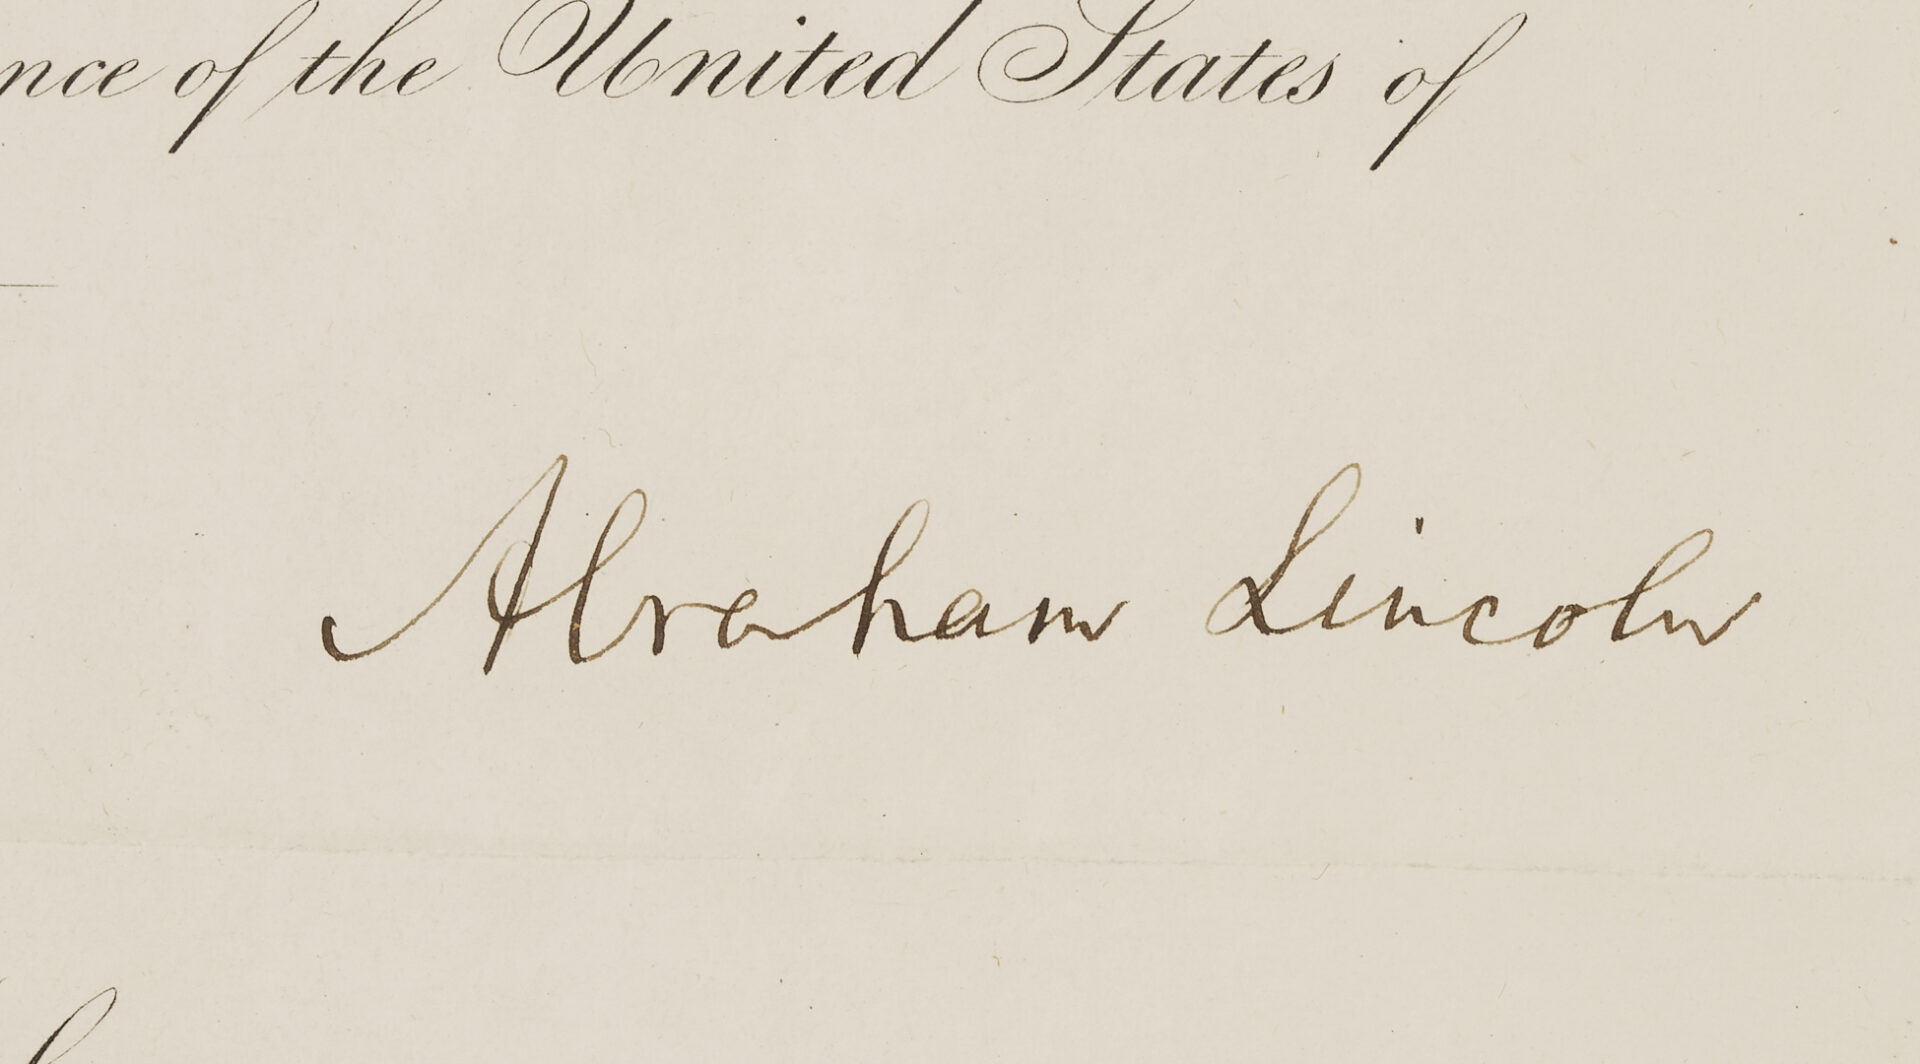 nce of the United States of
Abraham Lincoln